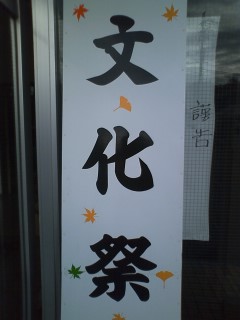 文化祭
謹告